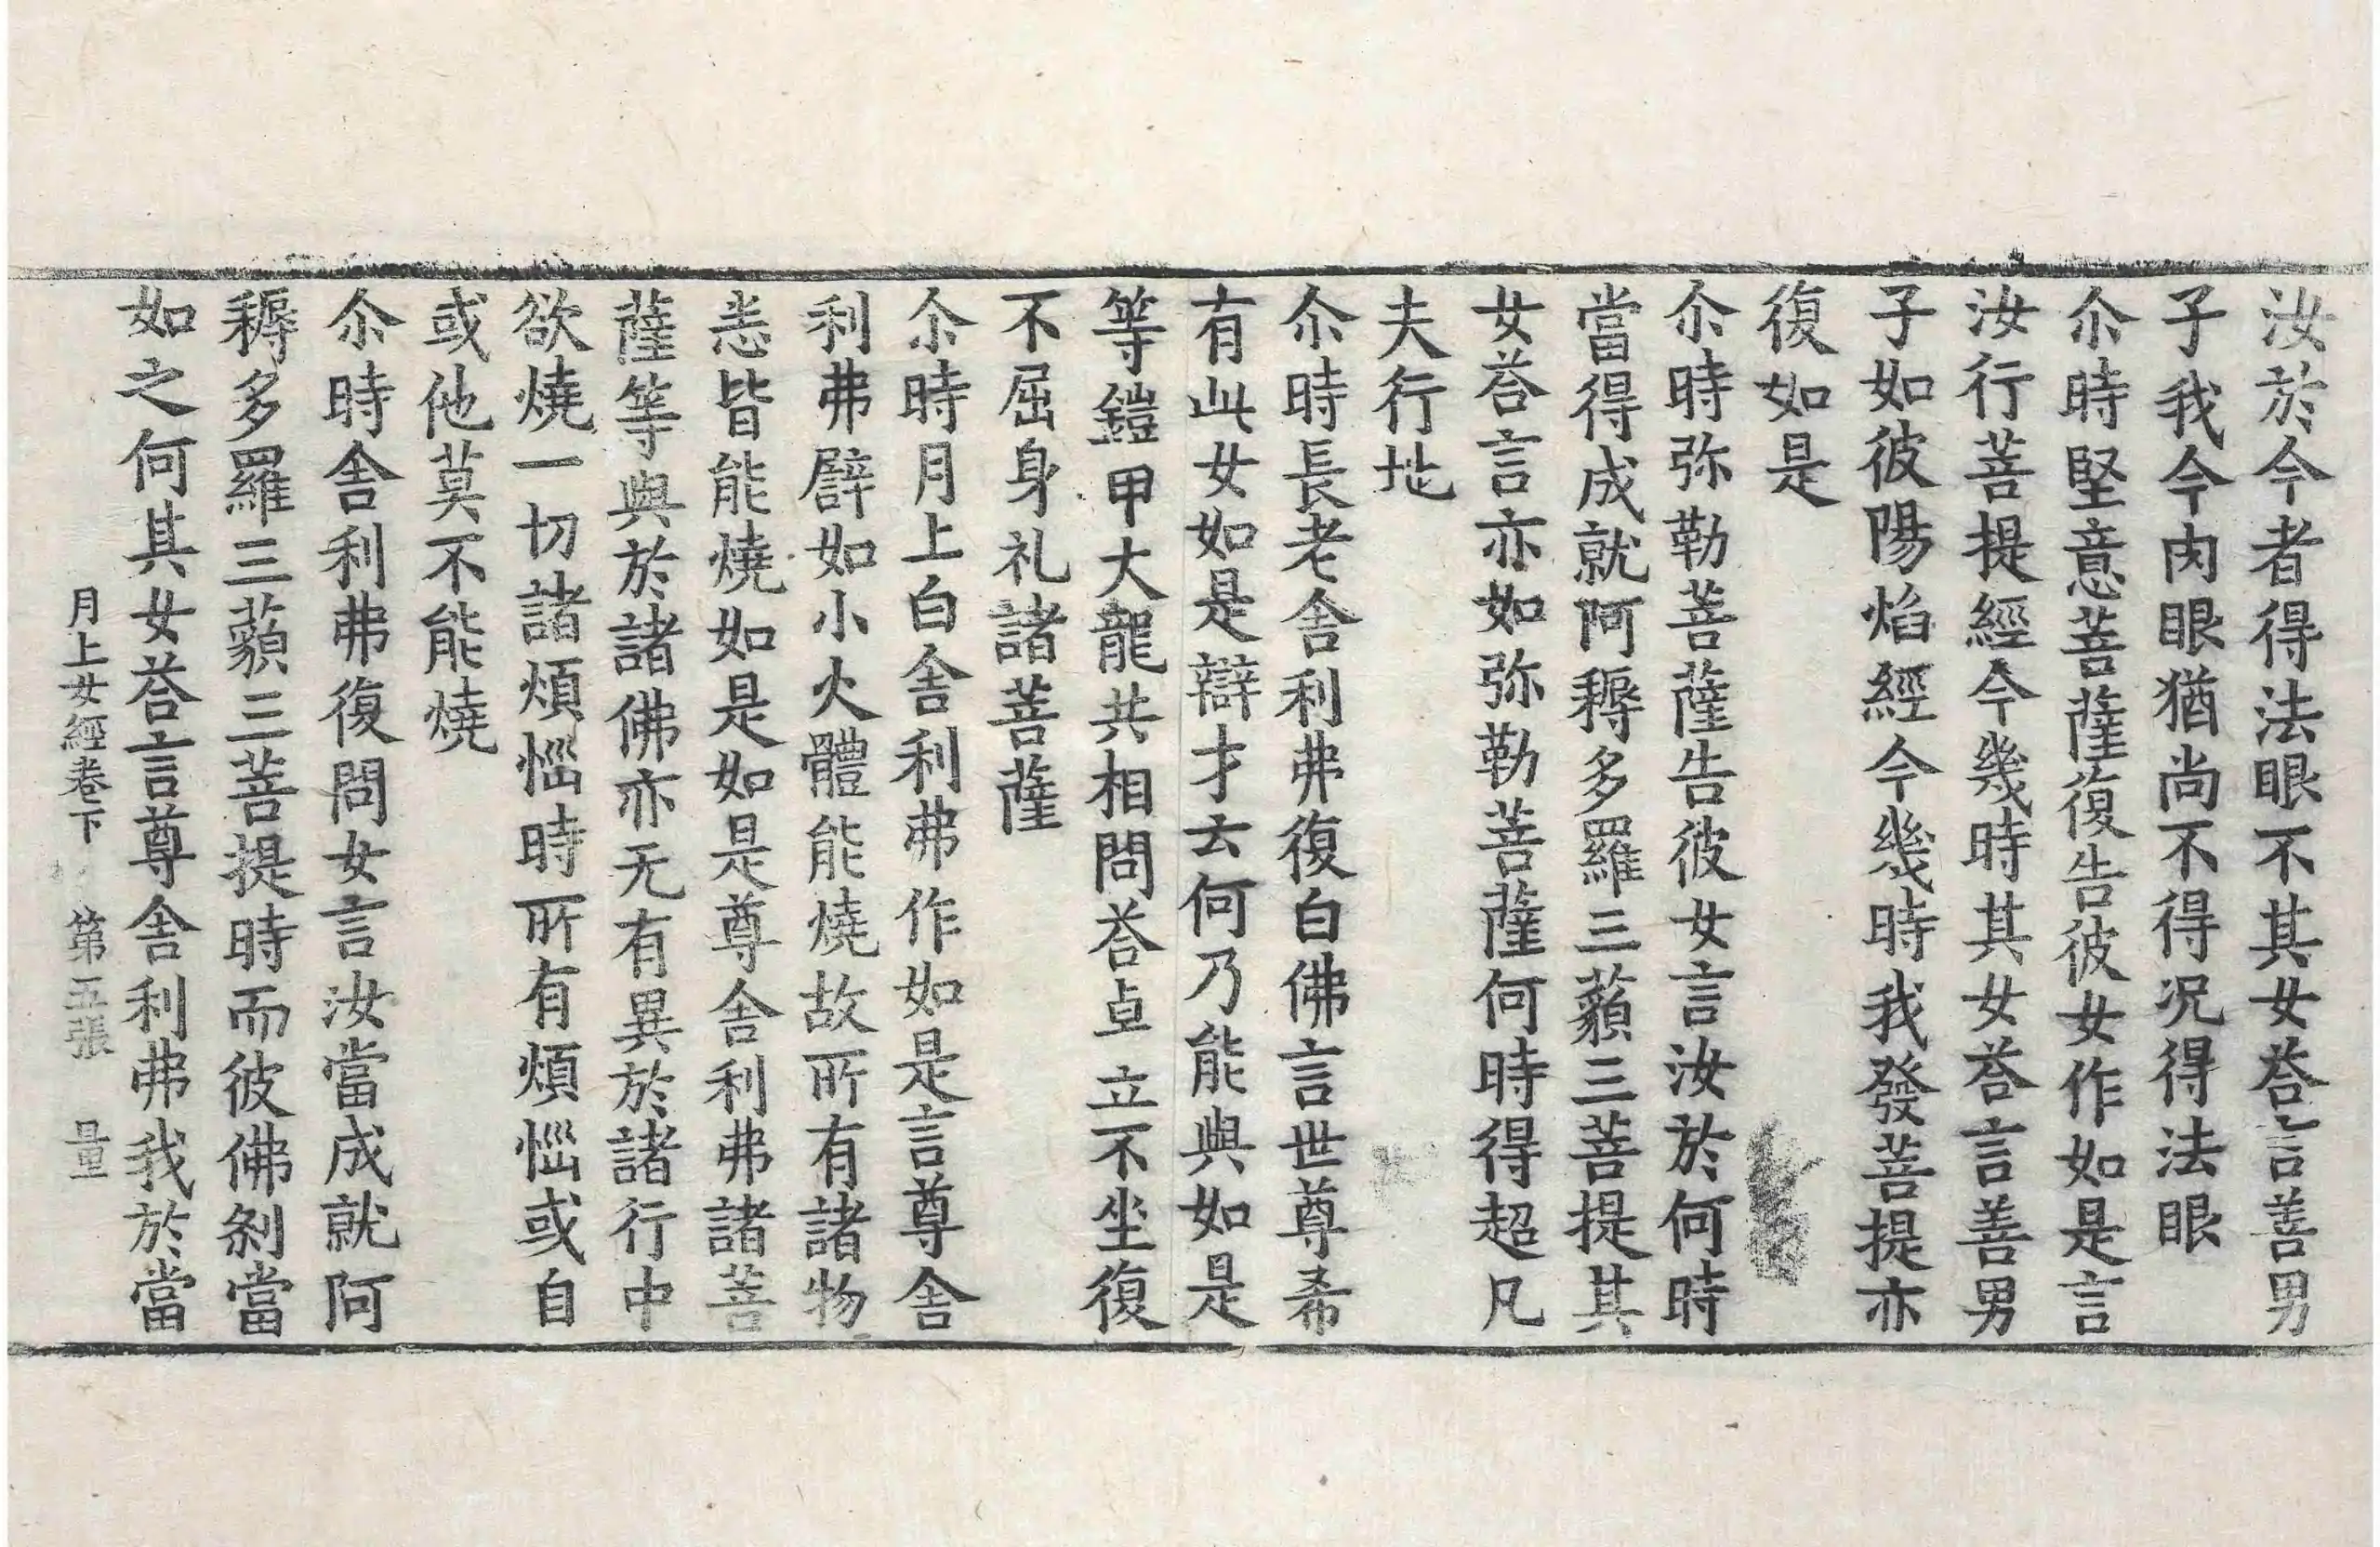 汝於今者得法眼不其女荅言善男
子我今肉眼猶尚不得况得法眼
尒時堅意菩薩復告彼女作如是言
汝行菩提經今幾時其女荅言善男
子如彼陽焰經今幾時我發菩提亦
復如是
尒時弥勒菩薩告彼女言汝於何時
當得成就阿耨多羅三藐三菩提其
女荅言亦如弥勒菩薩何時得超凡
夫行地
尒時長老舍利弗復白佛言世尊希
有此女如是辯才云何乃能與如是
等鎧甲大龍共相問荅 立不坐復
不屈身礼諸菩薩
尒時月上白舍利弗作如是言尊舍
利弗譬如小火體能燒故所有諸物
悉皆能燒如是如是尊舍利弗諸菩
薩等與於諸佛亦无有異於諸行中
欲燒一切諸煩惱時所有煩惱或自
或他莫不能燒
尒時舍利弗復問女言汝當成就阿
耨多羅三藐三菩提時而彼佛刹當
如之何其女荅言尊舍利弗我於當
月上女經卷下 第五張 量